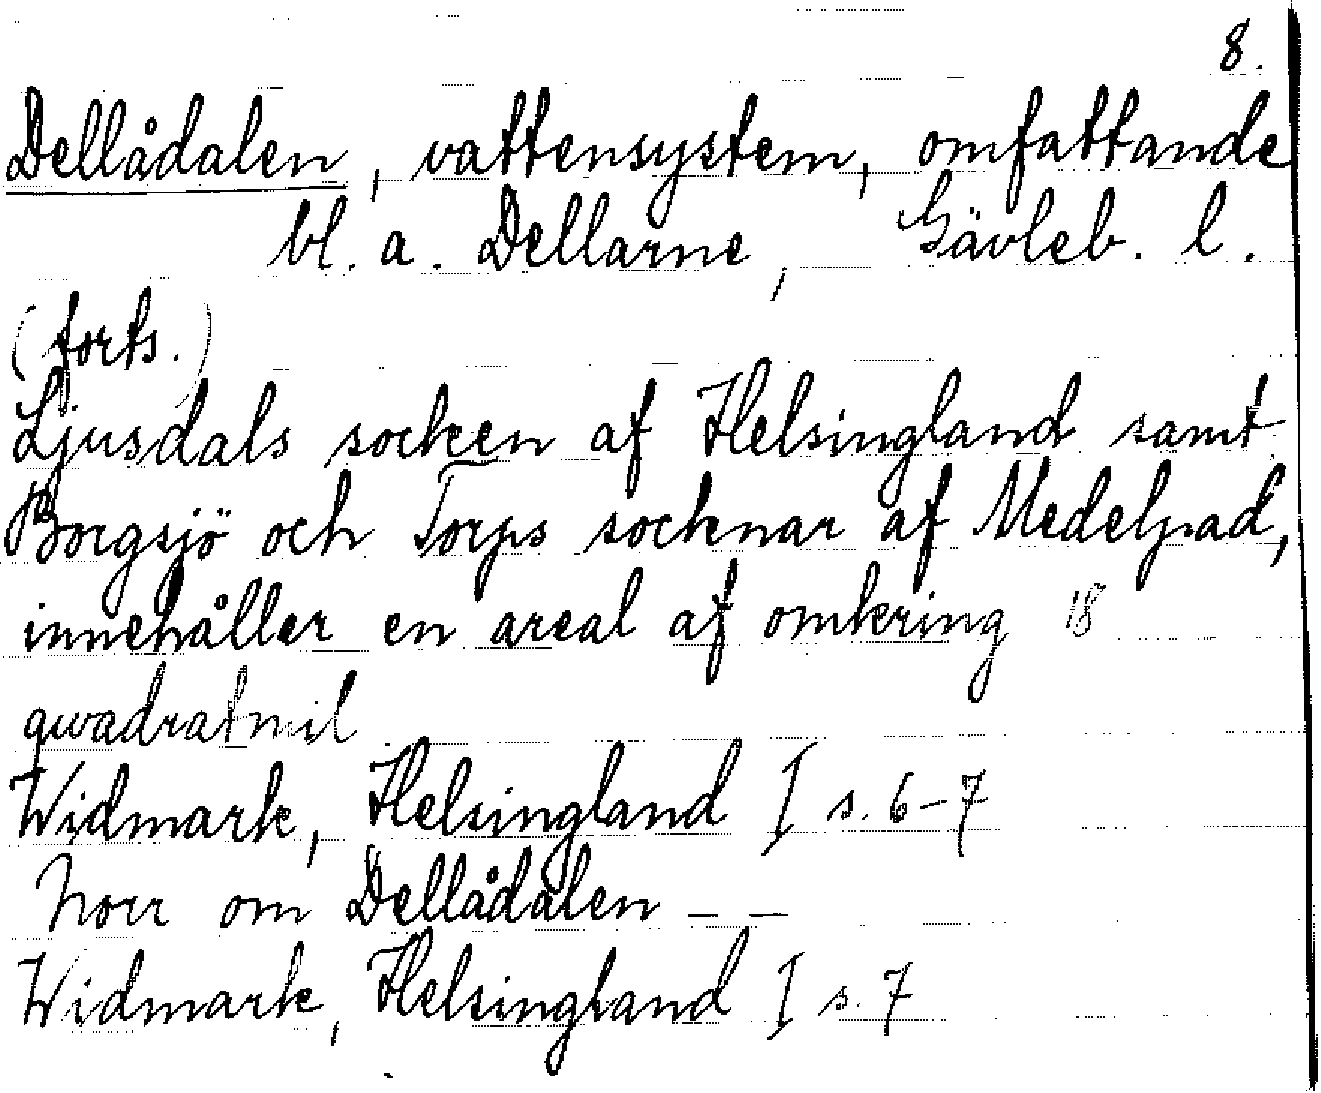 8.
Dellådalen, vattensystem, omfattande
bl. a. Dellarne, Gävleb. l.
(forts.)
Ljusdals socken af Helsingland samt
Borgsjö och Torps socknar af Medelpad,
innehåller en areal af omkring 18
qwadratmil
Widmark, Helsingland I s. 6-7
Norr om Dellådalen _ _
Widmark, Helsingland I s. 7